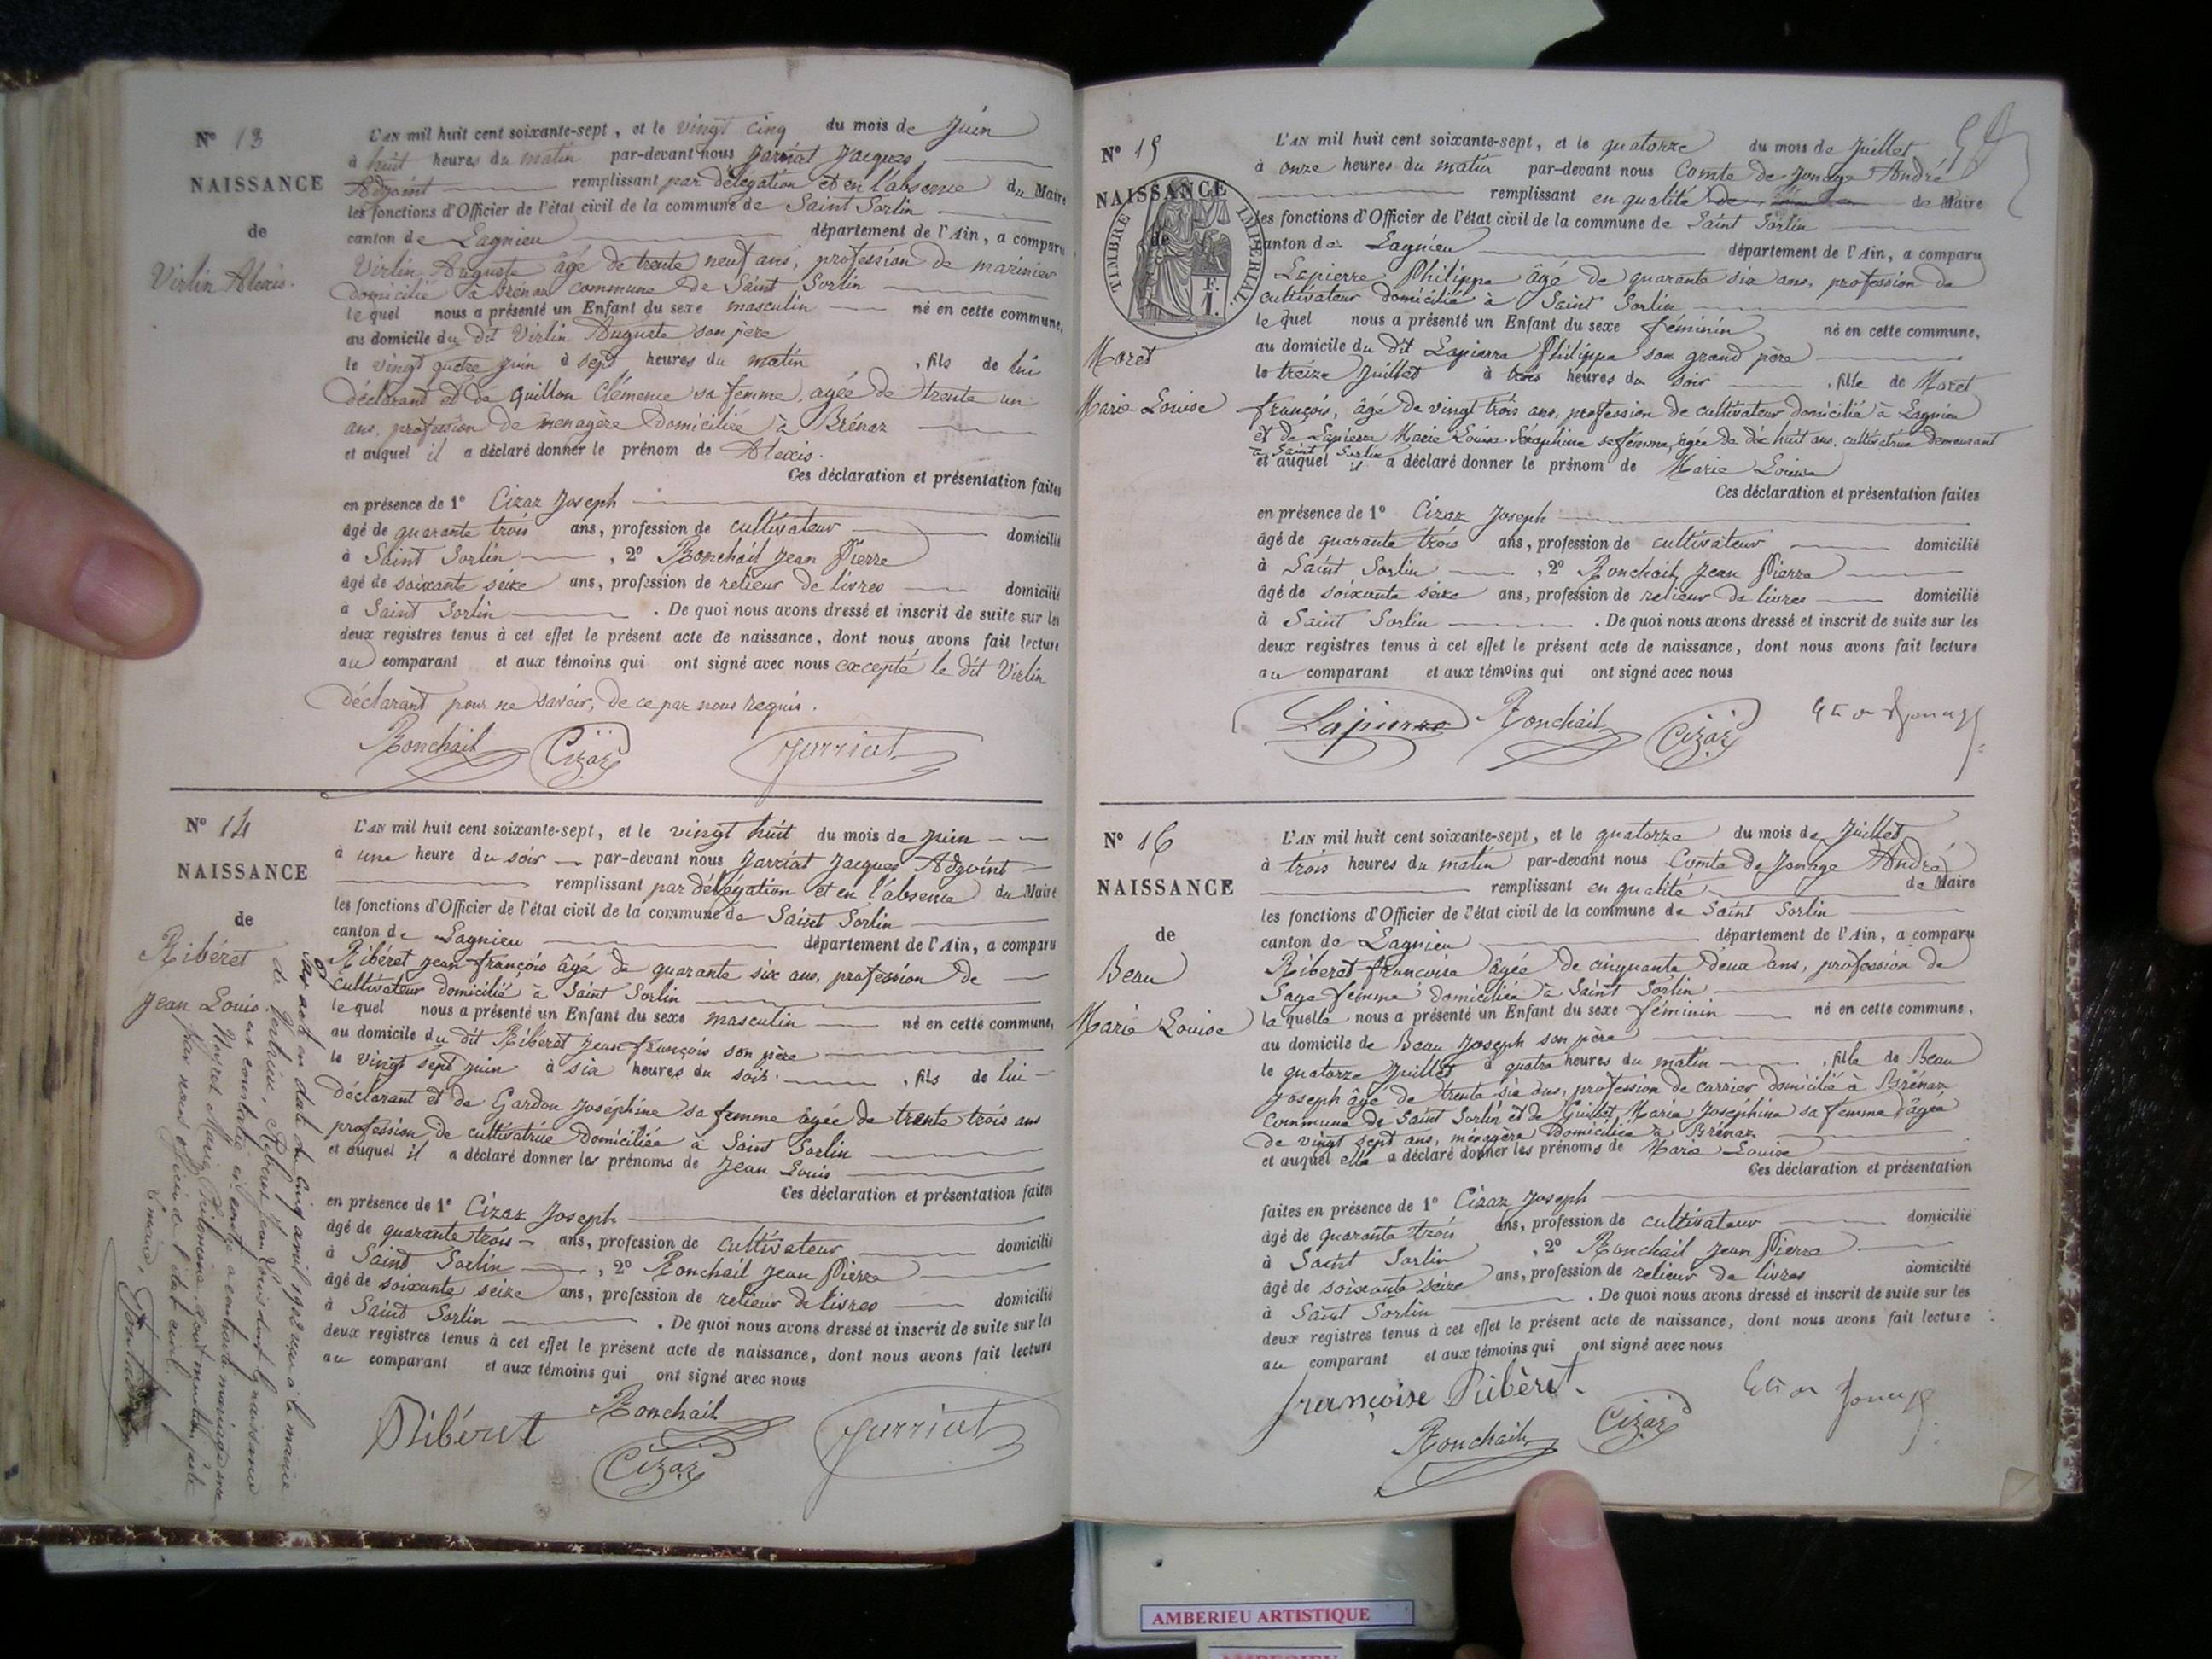 Nº 13
NAISSANCE
de
Virlin Alexis.
L'AN mil huit cent soixante-sept, et le vingt cinq du mois de Juin
à huit heures du matin par-devant nous Jarriat Jacques
Adjoint remplissant par délégation et en l'absence du Maire
les fonctions d'Officier de l'état civil de la commune de Saint Sorlin
canton de Lagnieu département de l'Ain, a comparu
Virlin Auguste âgé de trente neuf ans, profession de marinier
domicilié à Brénaz commune de Saint Sorlin
lequel nous a présenté un Enfant du sexe masculin né en cette commune,
au domicile du dit Virlin Auguste son père
le vingt quatre juin à sept heures du matin, fils de lui
déclarant et de Quillon Clémence sa femme, agée de trente un
ans, profession de menagère domiciliée à Brénaz
et auquel il a déclaré donner le prénom de Alexis.
Ces déclaration et présentation faites
en présence de 1º Cizaz Joseph
âgé de quarante trois ans, profession de cultivateur domicilié
à Saint Sorlin, 2º Ronchail Jean Pierre
âgé de soixante seize ans, profession de relieur de livres domicilié
à Saint Sorlin. De quoi nous avons dressé et inscrit de suite sur les
deux registres tenus à cet effet le présent acte de naissance, dont nous avons fait lecture
au comparant et aux témoins qui ont signé avec nous excepté le dit Virlin
déclarant pour ne savoir, de ce par nous requis.
Ronchail Cizaz Jarriat
Nº 14
NAISSANCE
de
Ribéret
Jean Louis
L'AN mil huit cent soixante-sept, et le vingt huit du mois de Juin
à une heure du soir par-devant nous Jarriat Jacques Adjoint
remplissant par délégation et en l'absence du Maire
les fonctions d'Officier de l'état civil de la commune de Saint Sorlin
canton de Lagnieu département de l'Ain, a comparu
Ribéret Jean françois âgé de quarante six ans, profession de
cultivateur domicilié à Saint Sorlin
lequel nous a présenté un Enfant du sexe masculin né en cette commune,
au domicile du dit Ribéret Jean françois son père
le vingt sept juin à six heures du soir, fils de lui
déclarant et de Gardon Joséphine sa femme âgée de trente trois ans
profession de cultivatrice domiciliée à Saint Sorlin
et auquel il a déclaré donner les prénoms de Jean Louis
Ces déclaration et présentation faites
en présence de 1º Cizaz Joseph
âgé de quarante trois ans, profession de cultivateur domicilié
à Saint Sorlin, 2º Ronchail Jean Pierre
âgé de soixante seize ans, profession de relieur de livres domicilié
à Saint Sorlin. De quoi nous avons dressé et inscrit de suite sur les
deux registres tenus à cet effet le présent acte de naissance, dont nous avons fait lecture
au comparant et aux témoins qui ont signé avec nous
Ribéret Ronchail
Cizaz Jarriat
Par acte en date du cinq avril 1902 reçu à la mairie
de Ribéret Jean Louis dont la naissance
est constatée ci contre a contracté mariage avec
Marie Philomène, dont mention faite
par nous officier de l'état civil.
Nº 15
NAISSANCE
de
TIMBRE IMPERIAL
F.
1.
Moret
Marie Louise
L'AN mil huit cent soixante-sept, et le quatorze du mois de Juillet
à onze heures du matin par-devant nous Comte de Jonage André
remplissant en qualité de Maire
les fonctions d'Officier de l'état civil de la commune de Saint Sorlin
canton de Lagnieu département de l'Ain, a comparu
Lapierre Philippe âgé de quarante six ans, profession de
cultivateur domicilié à Saint Sorlin
lequel nous a présenté un Enfant du sexe féminin né en cette commune,
au domicile du dit Lapierre Philippe son grand père
le treize Juillet à trois heures du soir, fille de Moret
françois, âgé de vingt trois ans, profession de cultivateur domicilié à Lagnieu
et de Lapierre Marie Louise Séraphine sa femme, agée de dix huit ans, cultivatrice demeurant
à Saint Sorlin
et auquel il a déclaré donner le prénom de Marie Louise
Ces déclaration et présentation faites
en présence de 1º Cizaz Joseph
âgé de quarante trois ans, profession de cultivateur domicilié
à Saint Sorlin, 2º Ronchail Jean Pierre
âgé de soixante seize ans, profession de relieur de livres domicilié
à Saint Sorlin. De quoi nous avons dressé et inscrit de suite sur les
deux registres tenus à cet effet le présent acte de naissance, dont nous avons fait lecture
au comparant et aux témoins qui ont signé avec nous
Lapierre Ronchail Cizaz Cte de Jonage
Nº 16
NAISSANCE
de
Beau
Marie Louise
L'AN mil huit cent soixante-sept, et le quatorze du mois de Juillet
à trois heures du matin par-devant nous Comte de Jonage André
remplissant en qualité de Maire
les fonctions d'Officier de l'état civil de la commune de Saint Sorlin
canton de Lagnieu département de l'Ain, a comparu
Riberet françoise âgée de cinquante deux ans, profession de
Sage femme domiciliée à Saint Sorlin
laquelle nous a présenté un Enfant du sexe féminin né en cette commune,
au domicile de Beau Joseph son père
le quatorze Juillet à quatre heures du matin, fille de Beau
Joseph âgé de trente six ans, profession de carrier domicilié à Brénaz
Commune de Saint Sorlin et de Guillet Marie Joséphine sa femme âgée
de vingt sept ans, ménagère domiciliée à Brénaz
et auquel elle a déclaré donner les prénoms de Marie Louise
Ces déclaration et présentation
faites en présence de 1º Cizaz Joseph
âgé de quarante trois ans, profession de cultivateur domicilié
à Saint Sorlin, 2º Ronchail Jean Pierre
âgé de soixante seize ans, profession de relieur de livres domicilié
à Saint Sorlin. De quoi nous avons dressé et inscrit de suite sur les
deux registres tenus à cet effet le présent acte de naissance, dont nous avons fait lecture
au comparant et aux témoins qui ont signé avec nous
françoise Ribèret.
Ronchail Cizaz Cte de Jonage
AMBERIEU ARTISTIQUE